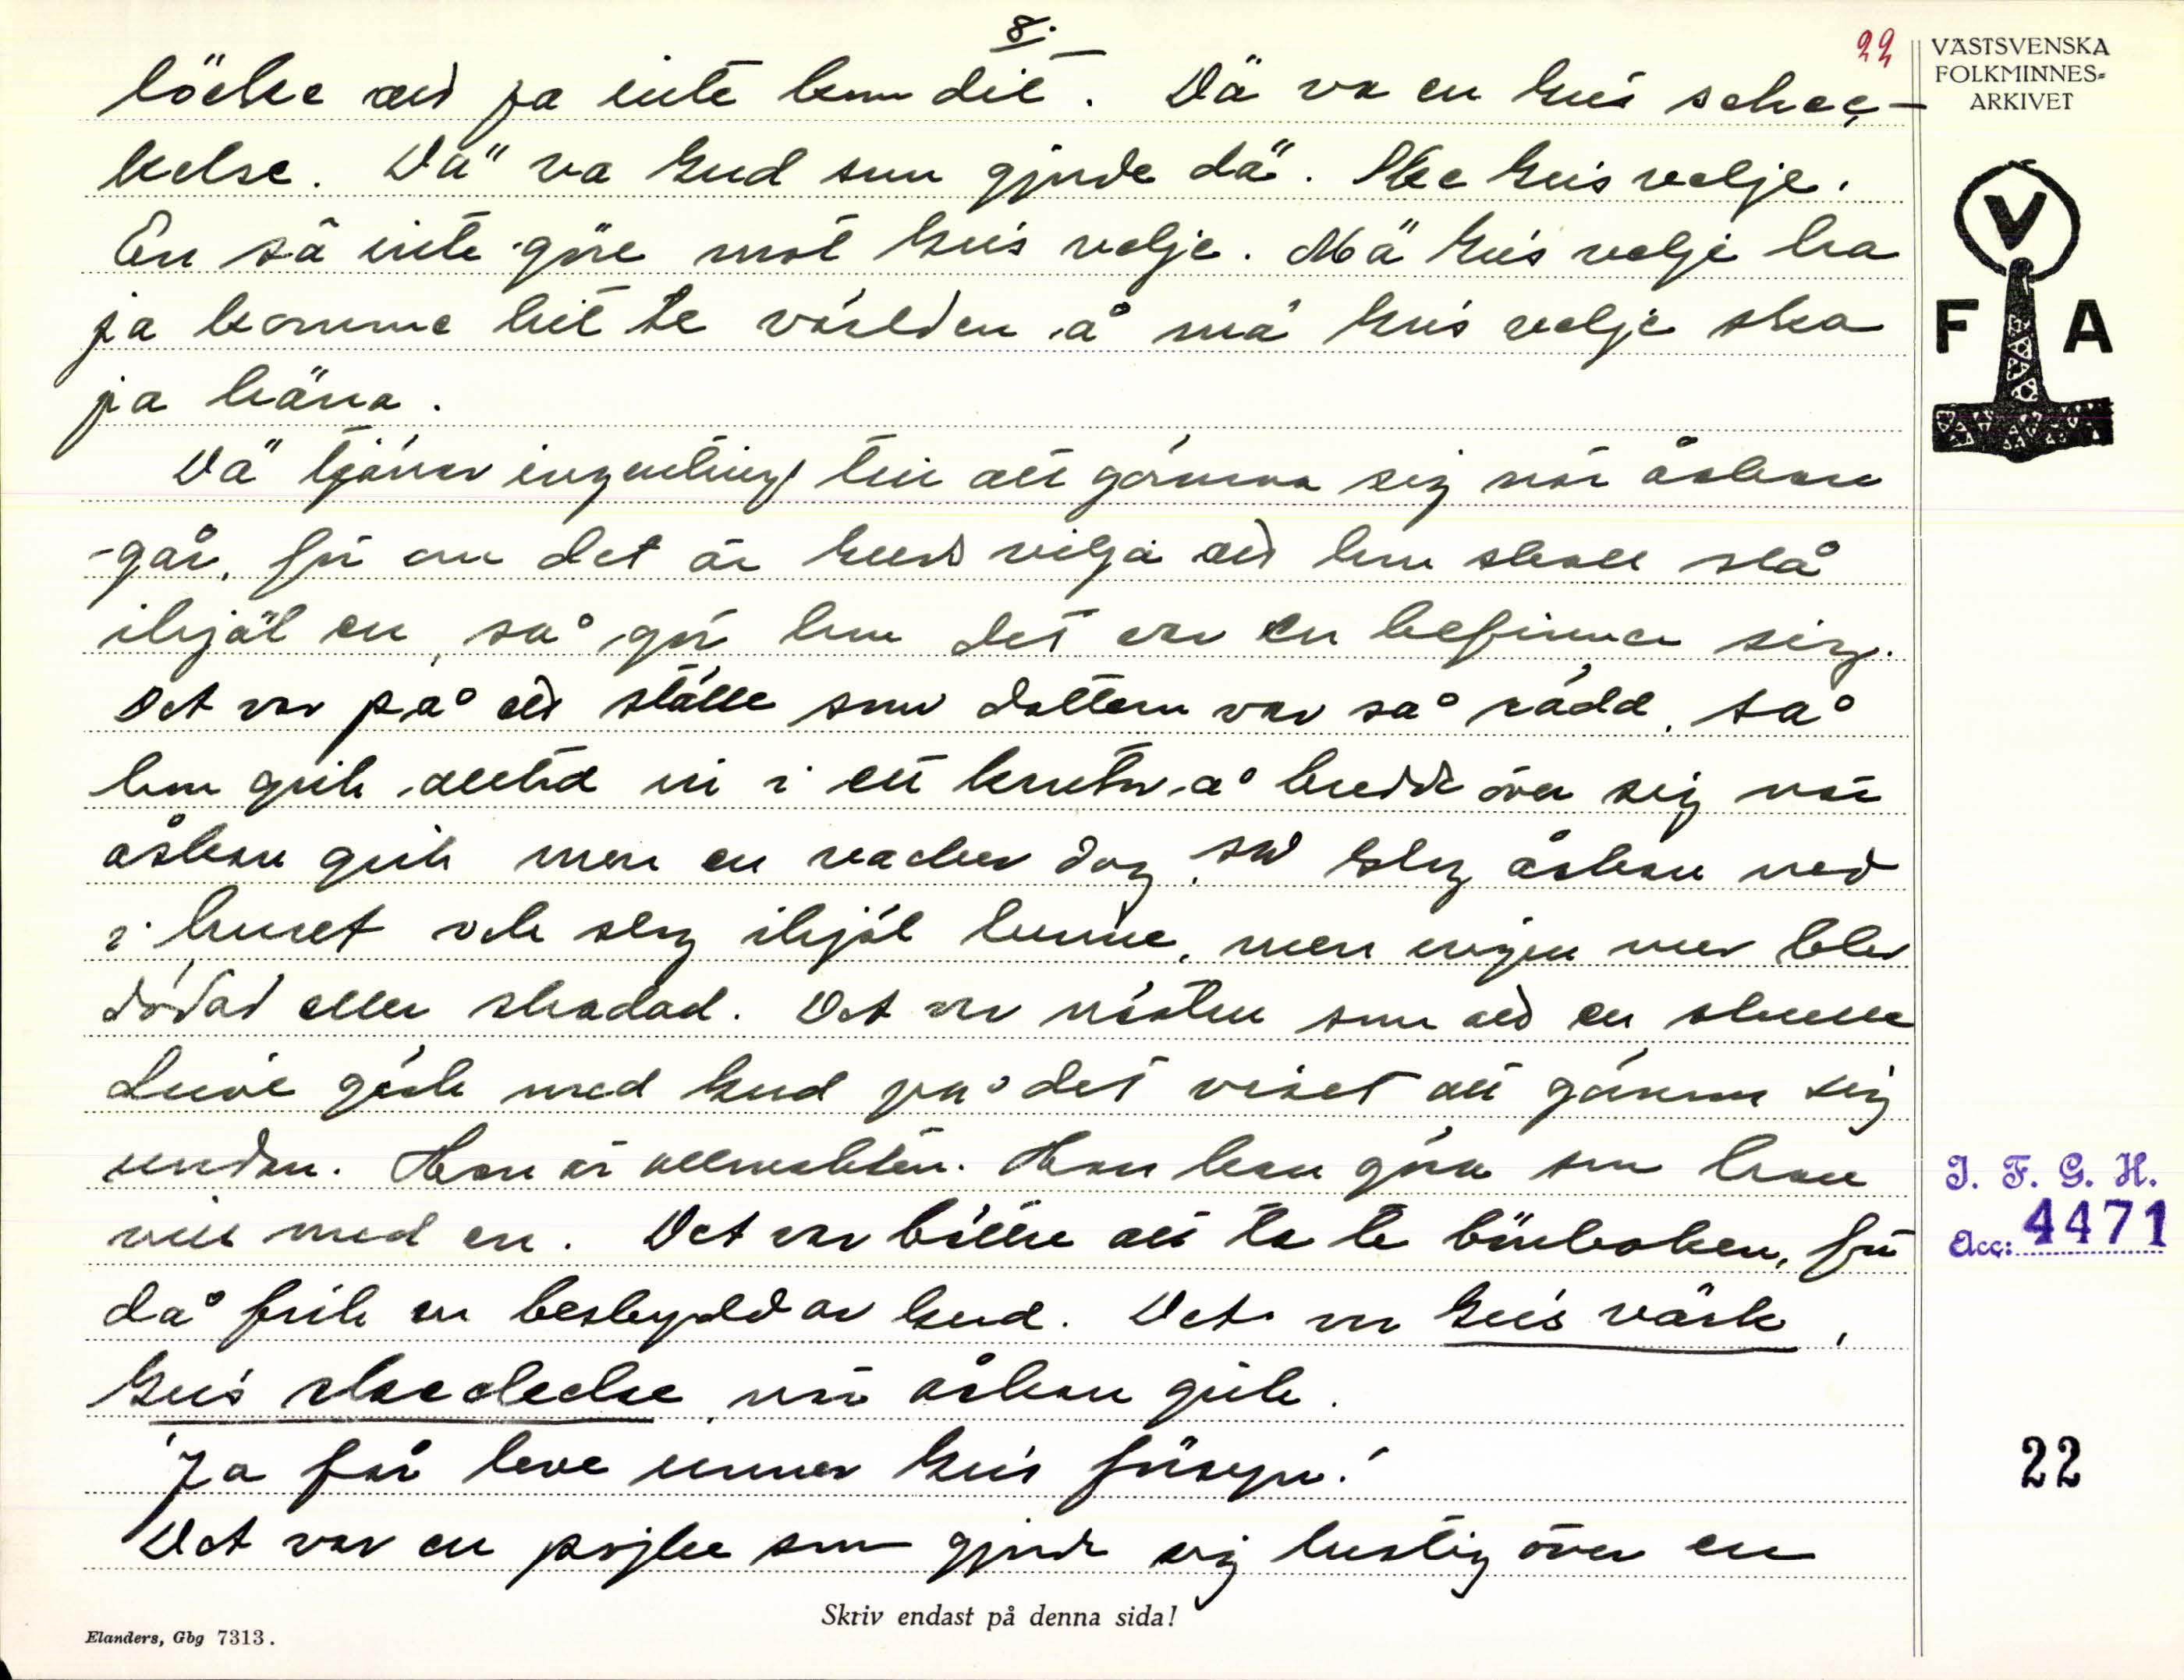 8.
22
löcke att ja inte kom dit. Dä va en Gus schec-
kelse. Dä va Gud som gjorde dä. Ske Gus velje.
En sä inte göre mot Gus velje. Mä Gus velje ha
ja komme hit te världen å mä Gus velje ska
ja häna.
Dä tjänar ingenting till att gömma sig när åskan
går, för om det är Guds vilja att hon skall slå
ihjäl en, så gör hon det var en befinner sig.
Det var på ett ställe som dottern var så rädd, så
hon gick alltid in i ett kontor å bredde över sig när
åskan gick men en vacker dag, så slog åskan ned
i huset och slog ihjäl henne, men ingen mer blev
dödad eller skadad. Det var nästen som att en skulle
driva gäck med Gud på det viset att gömma sig
undan. Han är allmakten. Han kan göra som han
vill med en. Det var bättre att ta te bönboken, för
då fick en beskydd av Gud. Det var Gus värk,
Gus skeckelse, när åskan gick.
"Ja får leve unner Gus försyn!
Det var en pojke som gjorde sig lustig över en
Skriv endast på denna sida!
Elanders, Gbg 7313.
VÄSTSVENSKA
FOLKMINNES=
ARKIVET
V
F A
I. F. G. H.
Acc: 4471
22